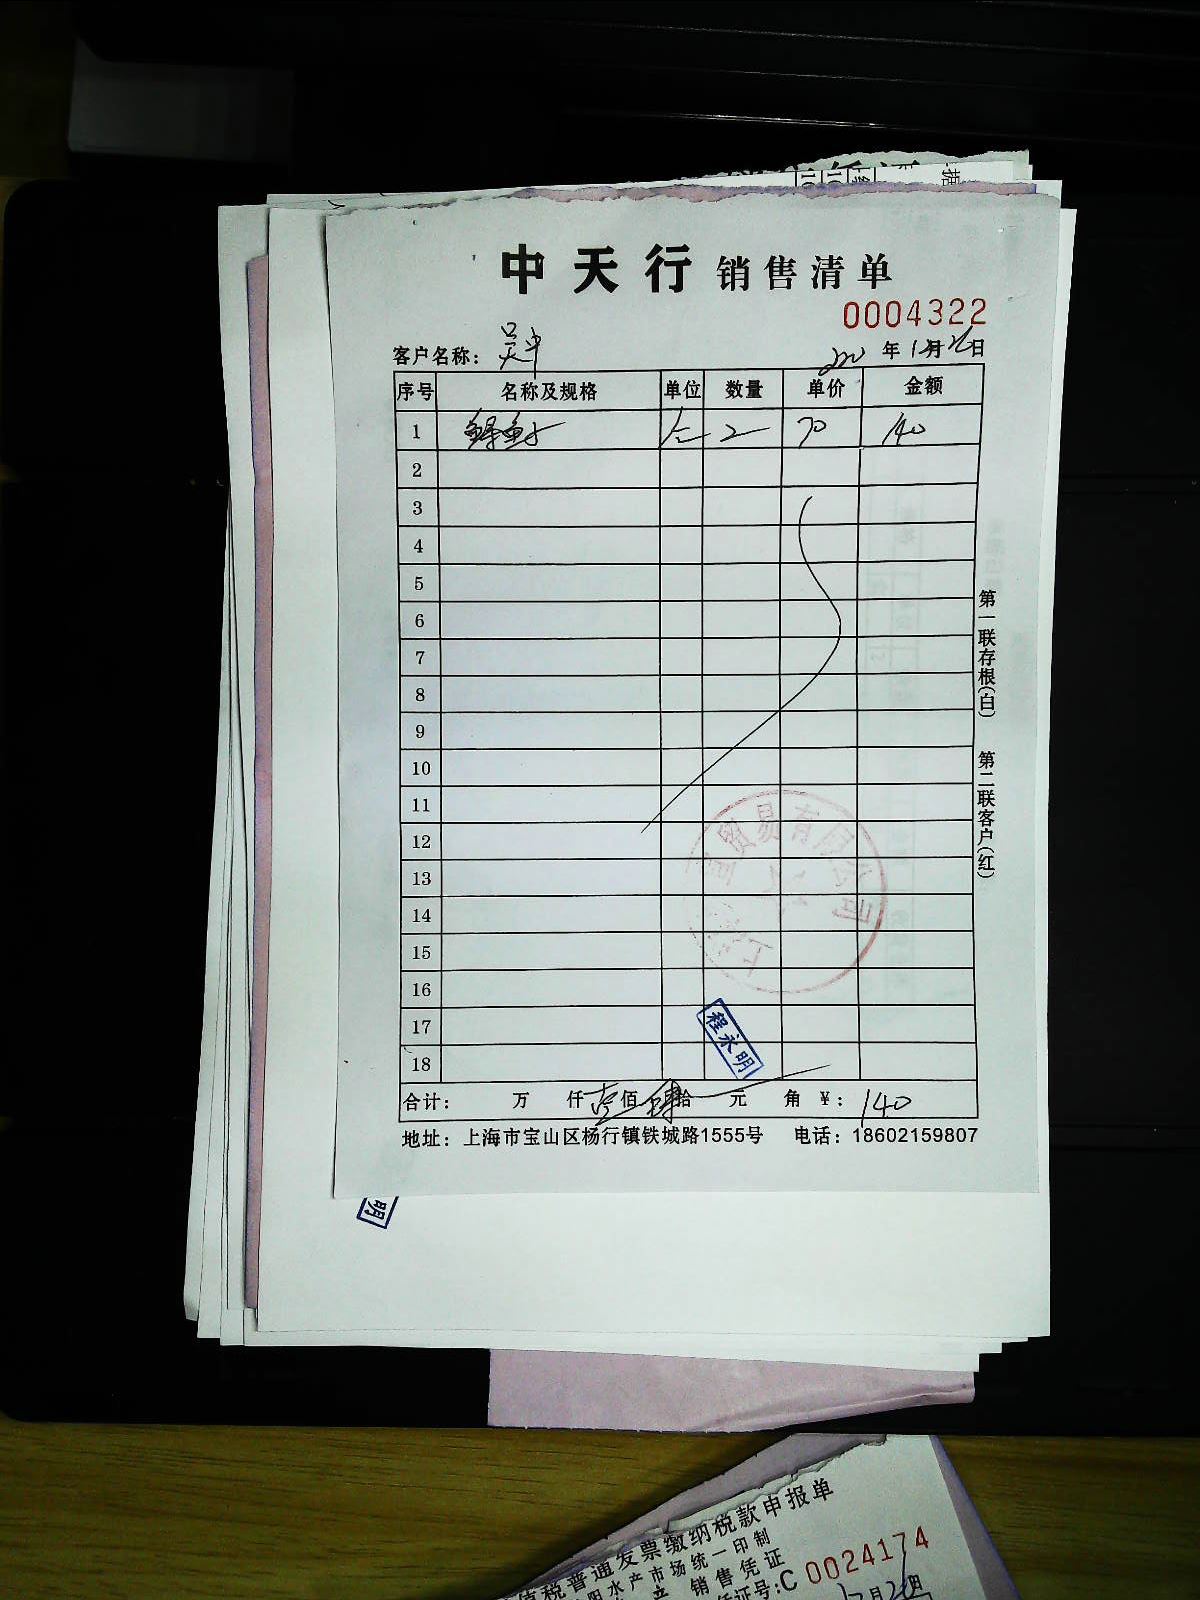 中天行 销售清单
0004322
客户名称：吴中 年12月26日
序号 名称及规格 单位 数量 单价 金额
1 2 70 140
2
3
4
5
6
7
8
9
10
11
12
13
14
15
16
17
18
第一联存根(白) 第二联客户(红)
贸易有限公司
程永明
合计： 万 仟壹佰肆拾 元 角 ¥：140
地址：上海市宝山区杨行镇铁城路1555号 电话：18602159807
明
值税普通发票缴纳税款申报单
阳水产市场统一印制
产 销售凭证
证号:C 0024174